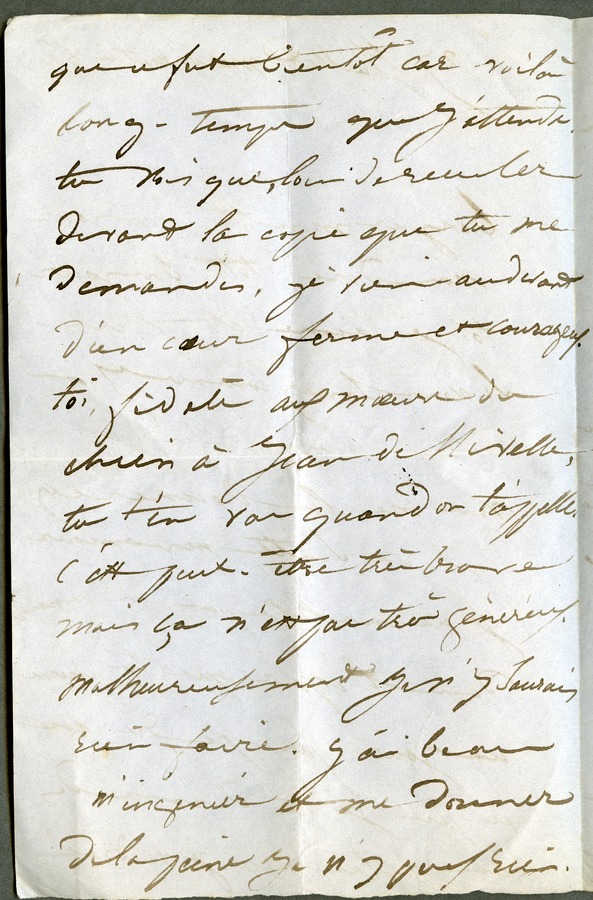 que ce fut bientôt car voilà
long-temps que j'attends.
tu vois que, loin de reculer
devant la copie que tu me
demandes, je viens au devant
d'un cœur ferme et courageux.
toi, fidèle aux mœurs du
chien à Jean de Nivelle,
tu t'en vas quand on t'appelle.
c'est peut-être très brave
mais ça n'est pas très généreux.
malheureusement je n'y saurais
rien faire. j'ai beau
m'ingénier et me donner
de la peine je n'y puis rien.